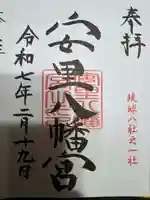 奉拝
琉球八社之一社
安里八幡宮
令和七年二月十九日